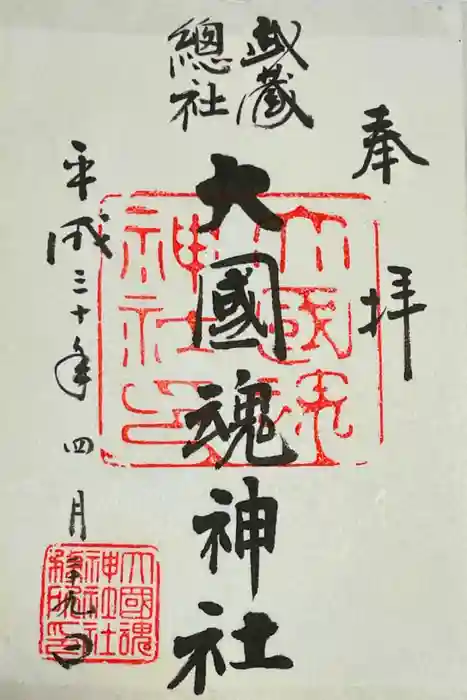 奉拝
武蔵
總社
大國魂神社
平成三十年四月廿九日
大國魂
神社印
大國魂
神社社